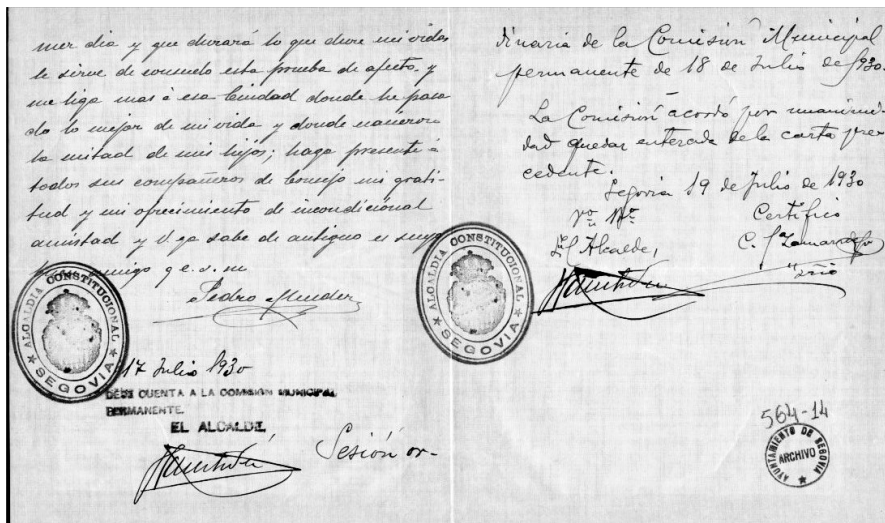 mer dia y que durará lo que dure mi vida
le sirve de consuelo esta prueba de afecto y
me liga mas á esa Ciudad donde he pasa
do lo mejor de mi vida y donde nacieron
la mitad de mis hijos; haga presente á
todos sus compañeros de Concejo mi grati-
tud y mi ofrecimiento de incondicional
amistad y V ya sabe de antiguo es suyo
amigo q e. s. m
Pedro Mendez
ALCALDIA CONSTITUCIONAL
SEGOVIA
17 Julio 1930
DESE CUENTA A LA COMISION MUNICIPAL
PERMANENTE.
EL ALCALDE,
Sesión or-
dinaria de la Comisión Municipal
permanente de 18 de Julio de 1930.
La Comisión acordó por unanimi-
dad quedar enterada de la carta pre-
cedente.
Segovia 19 de Julio de 1930
Vº Bº
El Alcalde,
Certifico
ALCALDIA CONSTITUCIONAL
SEGOVIA
564-14
AYUNTAMIENTO DE SEGOVIA
ARCHIVO